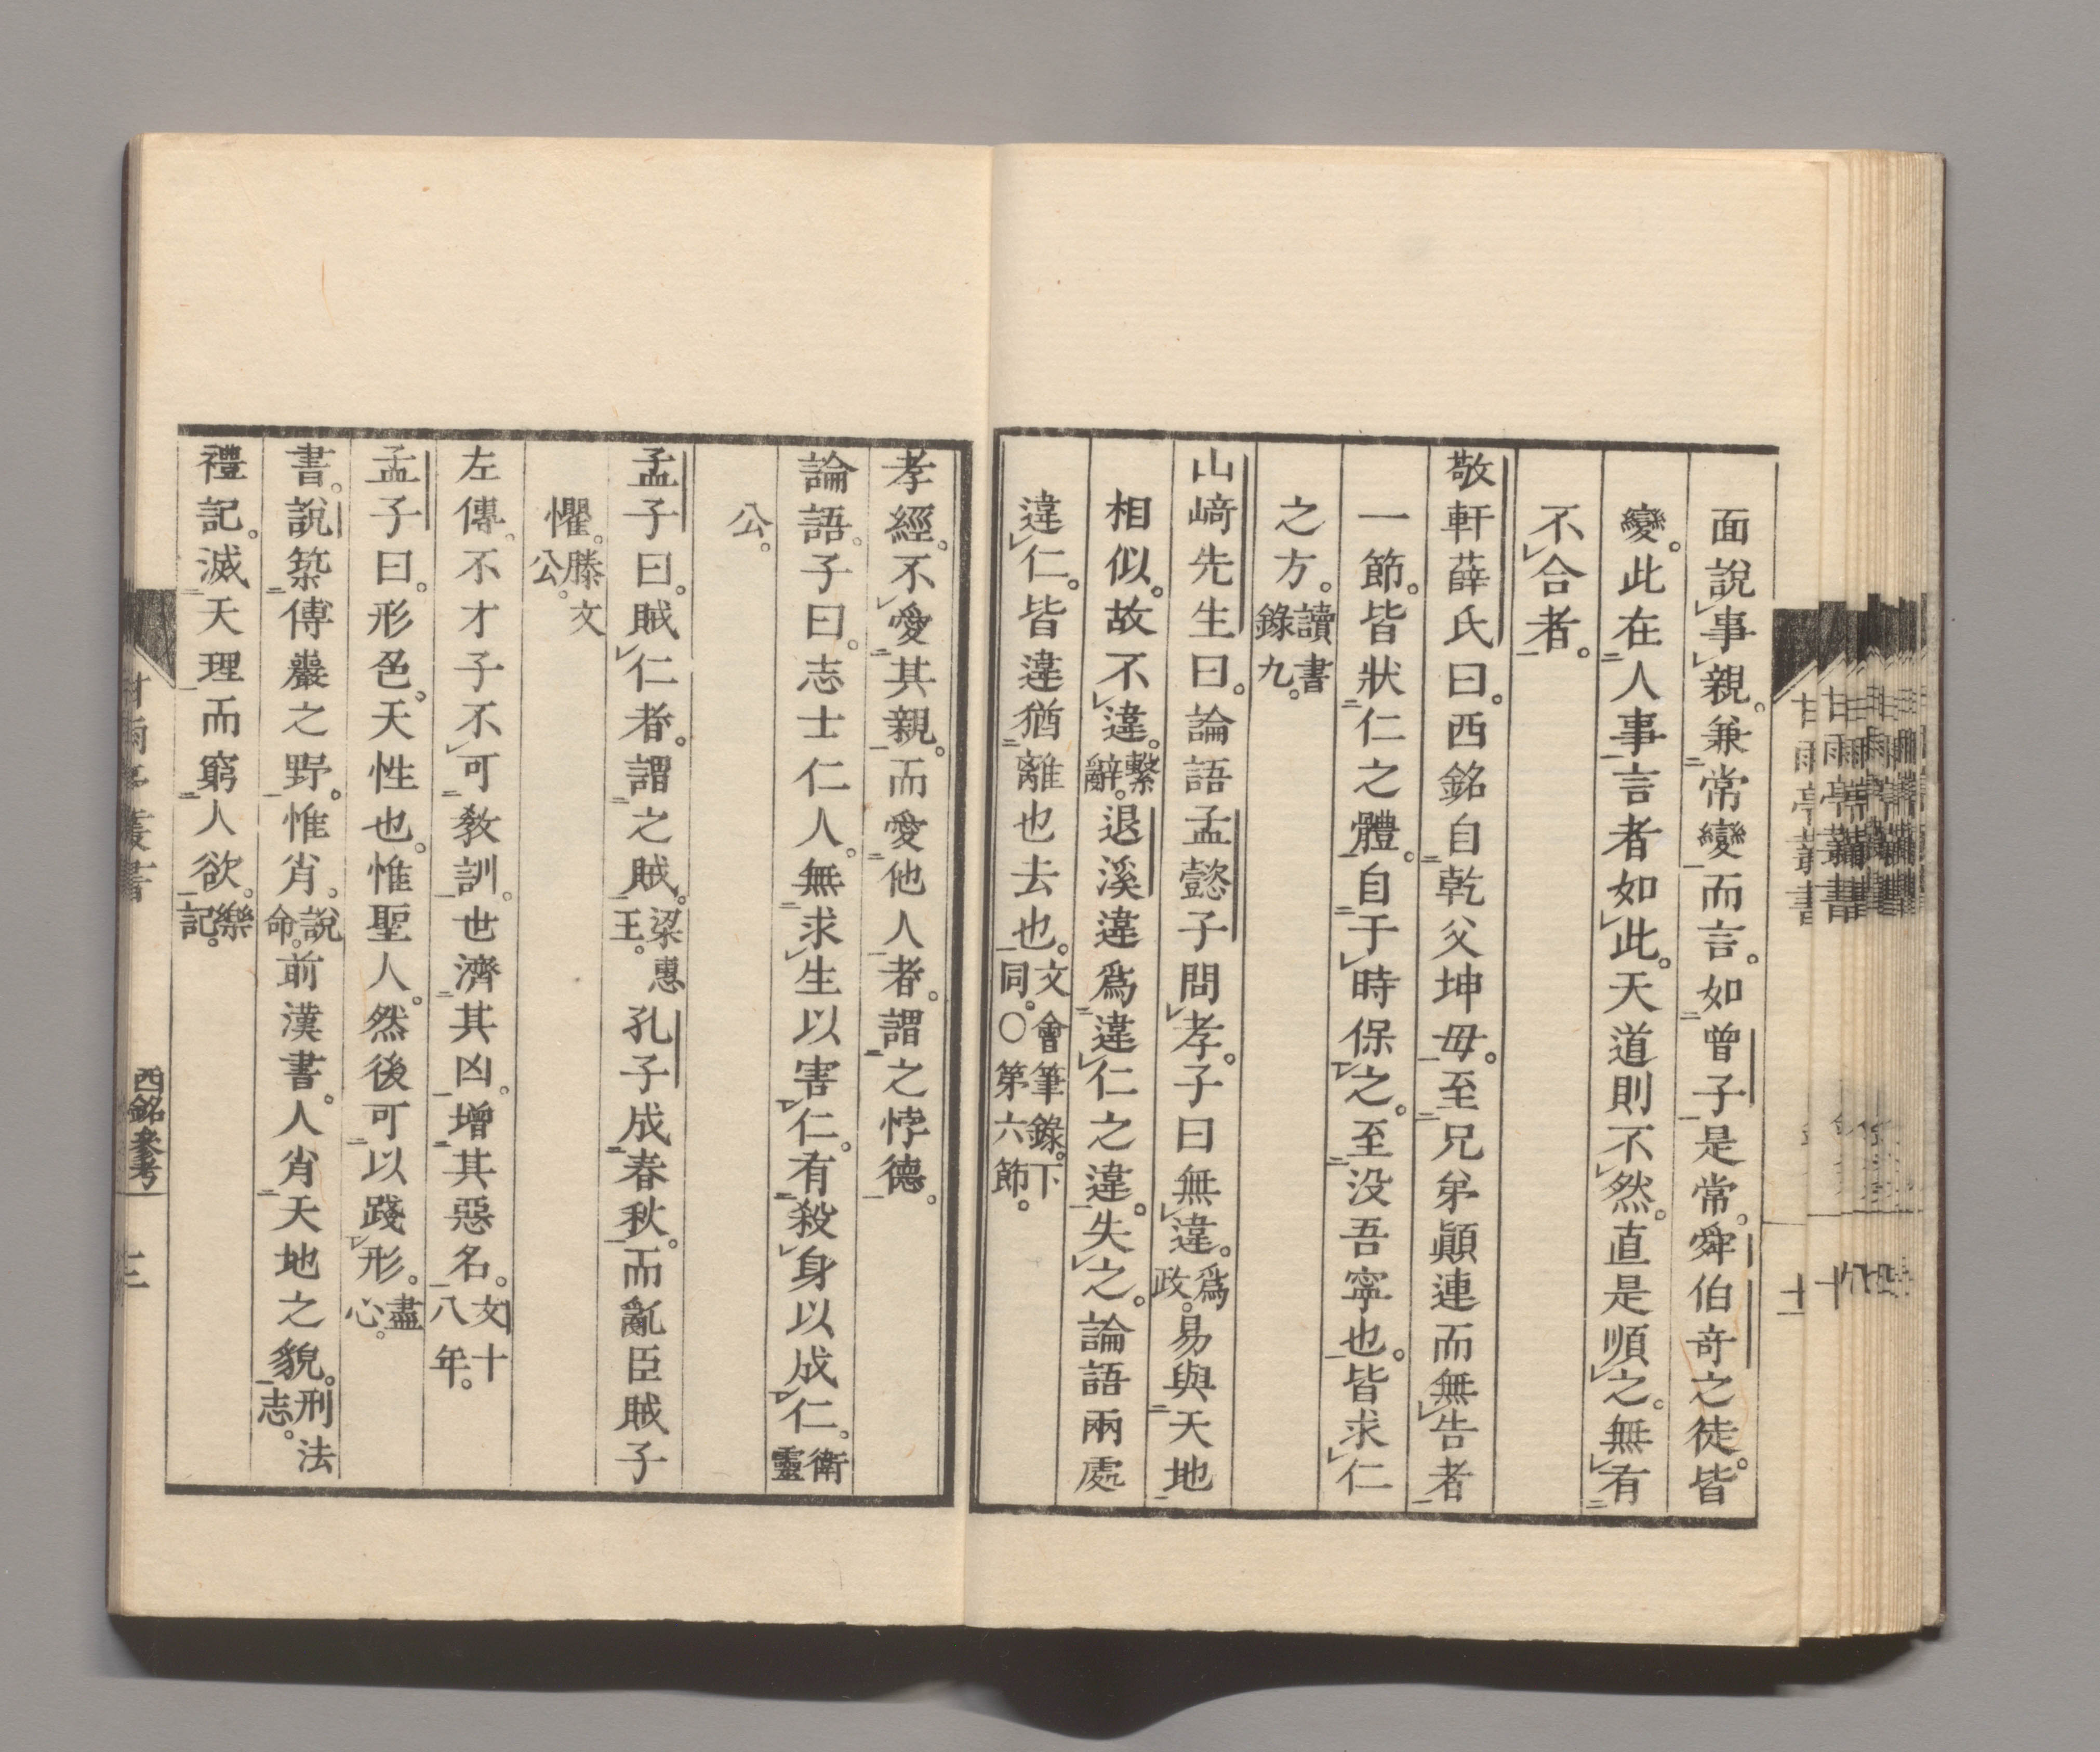 面說事親。兼常變而言。如曾子是常。舜伯奇之徒。皆
變。此在人事言者如此。天道則不然。直是順之。無有
不合者。
敬軒薛氏曰。西銘自乾父坤毋。至兄弟顚連而無告者
一節。皆狀仁之體。自于時保之。至没吾寧也。皆求仁
之方。讀書錄九。
山﨑先生曰。論語孟懿子問孝。子曰無違。爲政。易與天地
相似。故不違。繫辭。退溪違爲違仁之違。失之。論語兩處
違仁。皆違猶離也去也。文會筆錄。下同。〇第六節。
孝經。不愛其親。而愛他人者。謂之悖德。
論語。子曰。志士仁人。無求生以害仁。有殺身以成仁。衛靈
公。
孟子曰。賊仁者。謂之賊。梁惠王。孔子成春秋。而亂臣賊子
懼。滕文公。
左傳。不才子不可敎訓。世濟其凶。增其惡名。文十八年。
孟子曰。形色。天性也。惟聖人。然後可以踐形。盡心。
書。說築傅巖之野。惟肖。說命。前漢書。人肖天地之貌。刑法志。
禮記。滅天理而窮人欲。樂記。
甘雨亭叢書
西銘參考
十二
甘雨亭叢書
十一